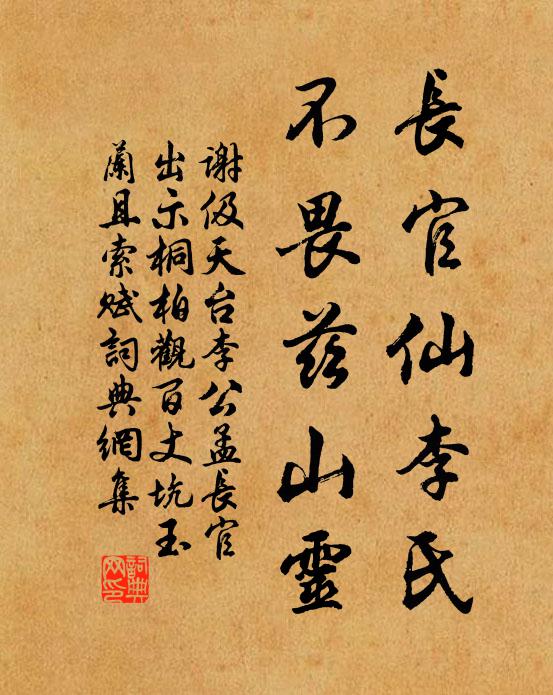 長官仙李氏
不畏茲山靈
谢伋天台李公孟長官
出示桐柏觀百丈坑玉
蘭且索赋詞典網集
詞典网印